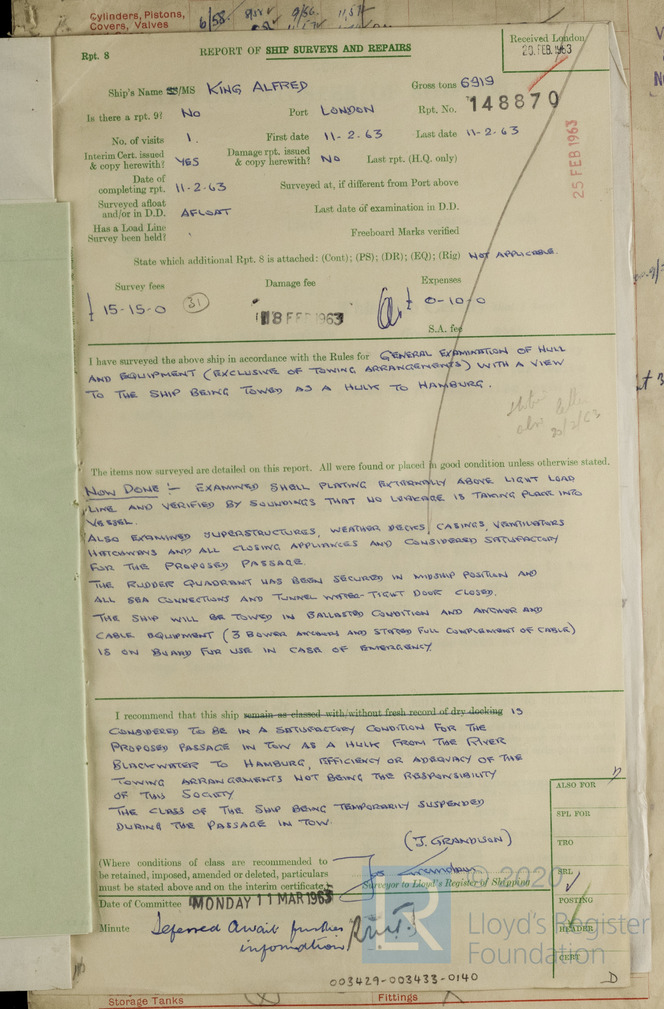 Cylinders, Pistons,
Covers, Valves
6/58.
Rpt. 8
REPORT OF SHIP SURVEYS AND REPAIRS
Received London
20. FEB. 1963
Ship's Name SS/MS KING ALFRED
Gross tons 6919
Is there a rpt. 9? No
Port LONDON
Rpt. No. 148870
No. of visits 1.
First date 11-2-63
Last date 11-2-63
Interim Cert. issued & copy herewith? YES
Damage rpt. issued & copy herewith? No
Last rpt. (H.Q. only)
25 FEB 1963
Date of completing rpt. 11-2-63
Surveyed at, if different from Port above
Surveyed afloat and/or in D.D. AFLOAT
Last date of examination in D.D.
Has a Load Line Survey been held?
Freeboard Marks verified
State which additional Rpt. 8 is attached: (Cont); (PS); (DR); (EQ); (Rig) NOT APPLICABLE.
Survey fees
Damage fee
Expenses
£ 15-15-0 (31)
18 FEB 1963
£ 0-10-0
S.A. fee
I have surveyed the above ship in accordance with the Rules for GENERAL EXAMINATION OF HULL
AND EQUIPMENT (EXCLUSIVE OF TOWING ARRANGEMENTS) WITH A VIEW
TO THE SHIP BEING TOWED AS A HULK TO HAMBURG.
20/2/63
The items now surveyed are detailed on this report. All were found or placed in good condition unless otherwise stated.
NOW DONE :- EXAMINED SHELL PLATING EXTERNALLY ABOVE LIGHT LOAD
LINE AND VERIFIED BY SOUNDINGS THAT NO LEAKAGE IS TAKING PLACE INTO
VESSEL.
ALSO EXAMINED SUPERSTRUCTURES, WEATHER DECKS, CASINGS, VENTILATORS
HATCHWAYS AND ALL CLOSING APPLIANCES AND CONSIDERED SATISFACTORY
FOR THE PROPOSED PASSAGE.
THE RUDDER QUADRANT HAS BEEN SECURED IN MIDSHIP POSITION AND
ALL SEA CONNECTIONS AND TUNNEL WATER-TIGHT DOOR CLOSED.
THE SHIP WILL BE TOWED IN BALLASTED CONDITION AND ANCHOR AND
CABLE EQUIPMENT (3 BOWER ANCHORS AND STATED FULL COMPLEMENT OF CABLE)
IS ON BOARD FOR USE IN CASE OF EMERGENCY
I recommend that this ship remain as classed with/without fresh record of dry docking IS
CONSIDERED TO BE IN A SATISFACTORY CONDITION FOR THE
PROPOSED PASSAGE IN TOW AS A HULK FROM THE RIVER
BLACKWATER TO HAMBURG, EFFICIENCY OR ADEQUACY OF THE
TOWING ARRANGEMENTS NOT BEING THE RESPONSIBILITY
OF THIS SOCIETY
THE CLASS OF THE SHIP BEING TEMPORARILY SUSPENDED
DURING THE PASSAGE IN TOW.
(J. GRANDISON)
ALSO FOR
SPL FOR
TRO
SRL
POSTING
HEADER
CERT
(Where conditions of class are recommended to
be retained, imposed, amended or deleted, particulars
must be stated above and on the interim certificate.)
Surveyor to Lloyd's Register of Shipping
Date of Committee MONDAY 11 MAR 1963
Minute Deferred Await further
information
© 2020
LR
Lloyd's Register
Foundation
003429-003433-0140
Storage Tanks
Fittings